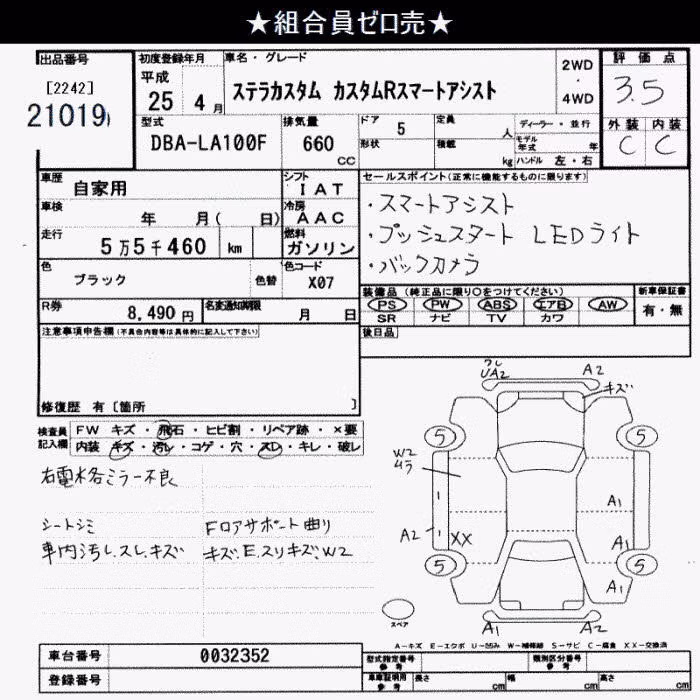 ★組合員ゼロ売★
出品番号
[2242]
21019
初度登録年月
平成
25 4 月
車名・グレード
ステラカスタム カスタムRスマートアシスト
2WD
・
4WD
評価点
3.5
外装 内装
C C
型式
DBA-LA100F
排気量
660
CC
ドア 5
形状
定員 人
積載 kg
ディーラー・並行
モデル年式 年
ハンドル 左・右
車歴
自家用
シフト
IAT
車検
年 月( 日)
冷房
AAC
走行
5万5千460 km
燃料
ガソリン
色
ブラック
色替
色コード
X07
R券
8,490円
名変通知期限
月 日
セールスポイント(正常に機能するものに限ります)
・スマートアシスト
・プッシュスタート LEDライト
・バックカメラ
装備品(純正品に限り○をつけてください)
PS PW ABS エアB AW
SR ナビ TV カワ
新車保証書
有・無
後日品
注意事項申告欄(不具合内容等は具体的に記入して下さい)
修復歴 有〔箇所 〕
検査員
記入欄
FW キズ・飛石・ヒビ割・リペア跡・×要
内装 キズ・汚レ・コゲ・穴・スレ・キレ・破レ
右電格ミラー不良
シートシミ
車内汚レ.スレ.キズ
Fロアサポート曲り
キズ.E.スリキズ.W2
ワレ
UA2
A2
キズ
5
5
W2
ムラ
A1
A2
XX
A1
5
5
A1
スペア
A1
A2
A-キズ E-エクボ U-凹み W-補修跡 S-サビ C-腐食 XX-交換済
車台番号
0032352
登録番号
型式指定番号
参考
類別区分番号
参考
車庫証明用
参考
長さ cm
幅 cm
高さ cm